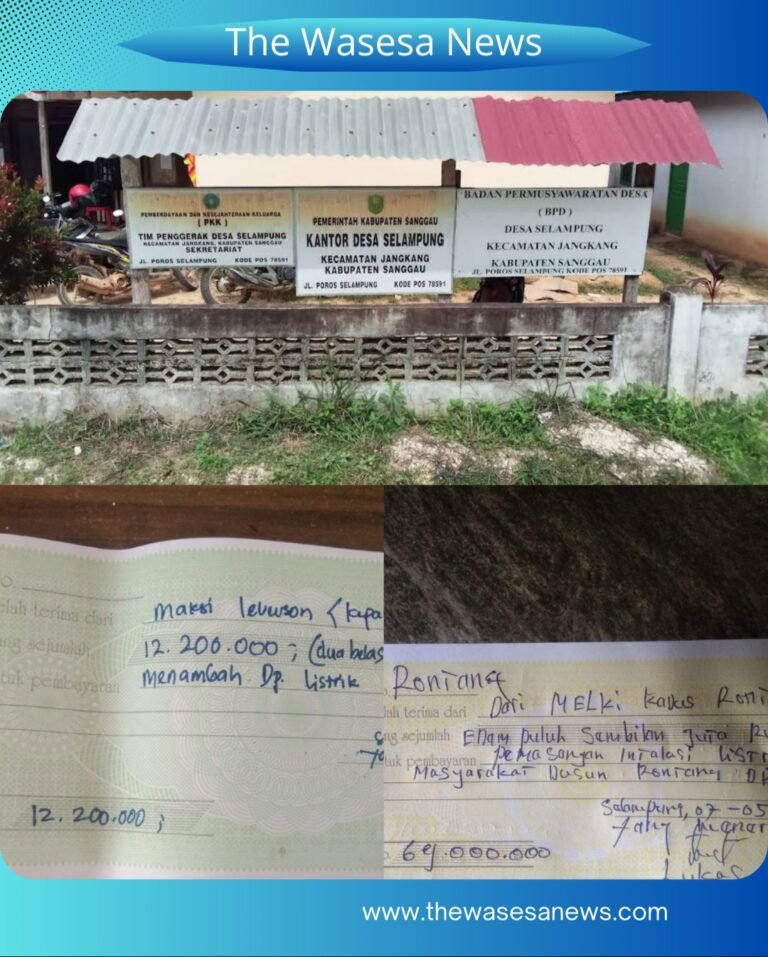 The Wasesa News
PEMBERDAYAAN DAN KESEJAHTERAAN KELUARGA
( PKK )
TIM PENGGERAK DESA SELAMPUNG
KECAMATAN JANGKANG, KABUPATEN SANGGAU
SEKRETARIAT
JL. POROS SELAMPUNG KODE POS 78591
PEMERINTAH KABUPATEN SANGGAU
KANTOR DESA SELAMPUNG
KECAMATAN JANGKANG
KABUPATEN SANGGAU
JL. POROS SELAMPUNG KODE POS 78591
BADAN PERMUSYAWARATAN DESA
( BPD )
DESA SELAMPUNG
KECAMATAN JANGKANG
KABUPATEN SANGGAU
JL. POROS SELAMPUNG KODE POS 78591
o.
elah terima dari
ng sejumlah 12.200.000 ; (dua belas
tuk pembayaran menambah Dp. listrik
12.200.000 ;
Rontang
lah terima dari Dari MELKI Kadus
ng sejumlah Enam puluh Sembilan Juta
tuk pembayaran pemasangan
Masyarakat Dusun Rontang
07-05
69.000.000
Lukas
www.thewasesanews.com